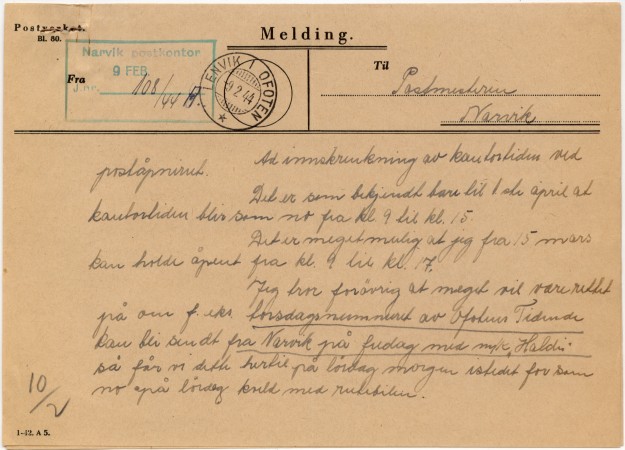 Postverket.
Bl. 60.
Melding.
Narvik postkontor
9 FEB.
J.nr. 108/44
Fra
LENVIK I OFOTEN
9.2.44
Til
Postmesteren
Narvik
Ad innskrenkning av kontortiden ved
poståpneriet.
Det er som bekjendt bare til 1ste april at
kontortiden blir som no fra kl 9 til kl. 15.
Det er meget mulig at jeg fra 15 mars
kan holde åpent fra kl. 9 til kl. 17.
Jeg tror forøvrig at meget vil være rettet
på om f. eks. torsdagsnummeret av Ofotens Tidende
kan bli sendt fra Narvik på fredag med m/k "Haldi"
så får vi dette hertil på lördag morgen istedet for som
no på lördag kveld med rutebilen.
10/2
1-42. A 5.